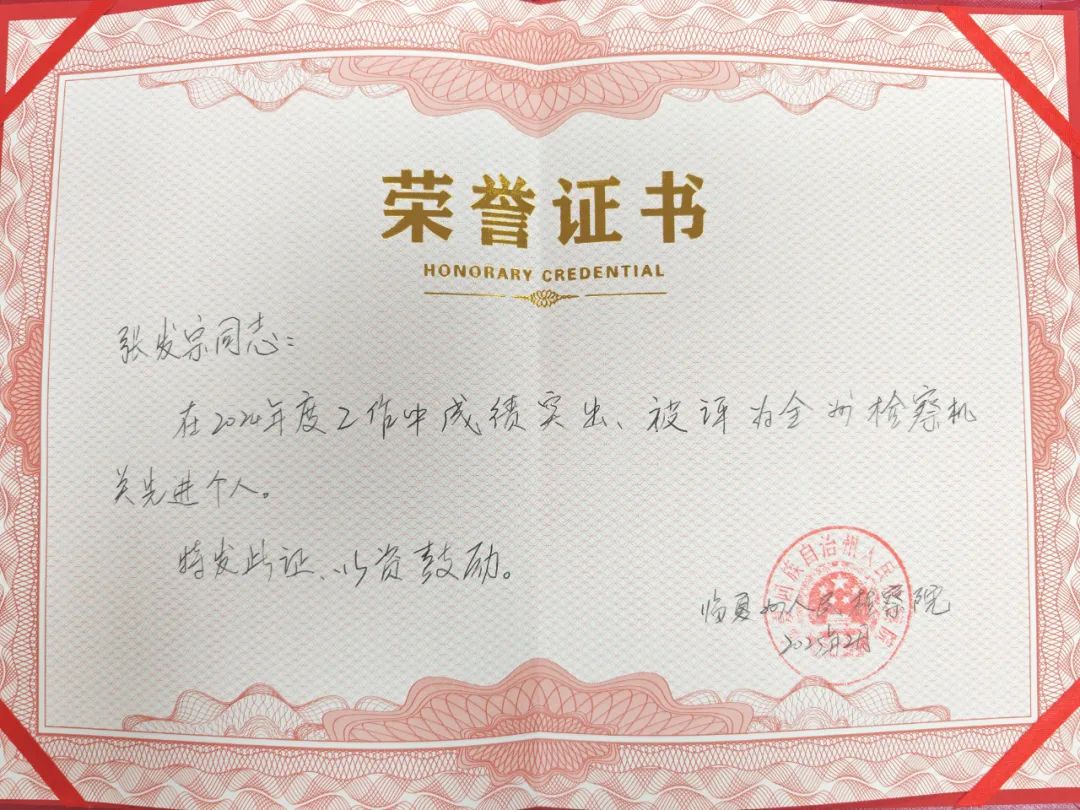 荣誉证书
HONORARY CREDENTIAL
张发宗同志：
在2024年度工作中成绩突出、被评为全州检察机
关先进个人。
特发此证、以资鼓励。
临夏州人民检察院
2025年2月